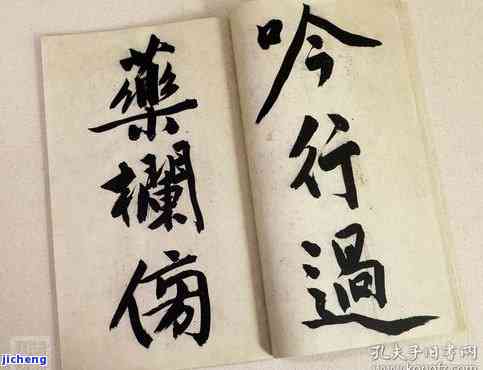 吟行過
藥欄傍
jicheng
孔夫子旧书网